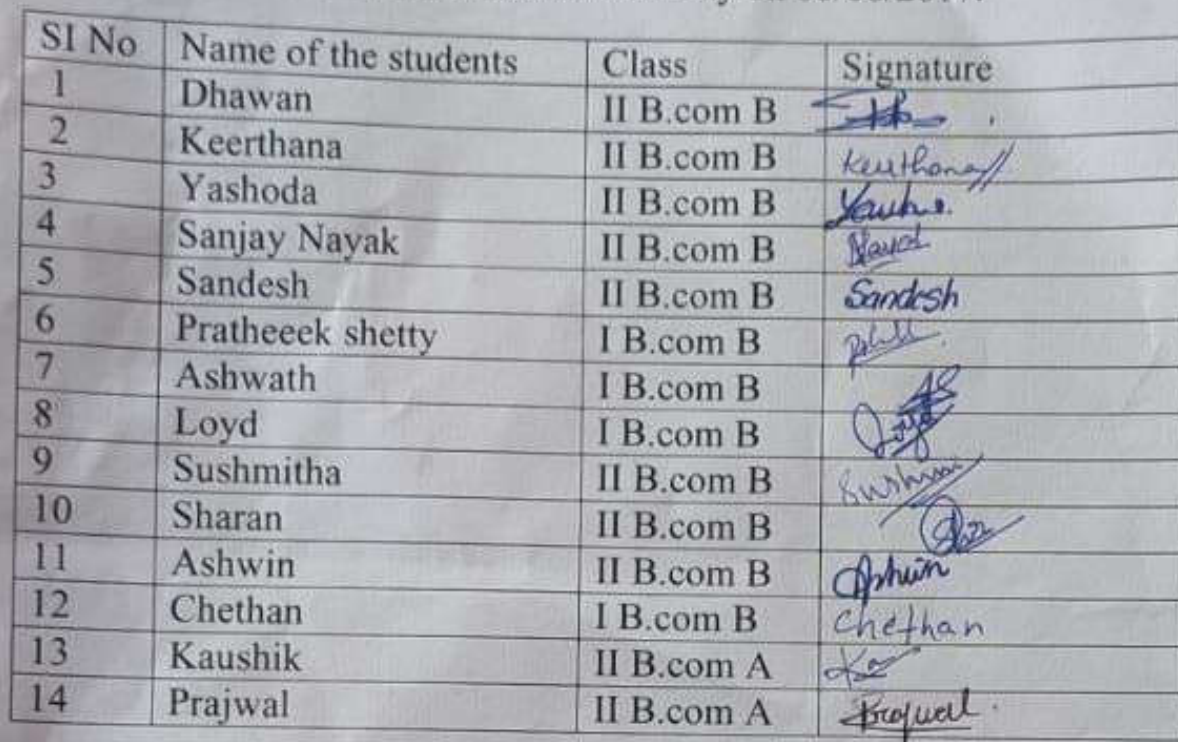 SI No Name of the students Class Signature
1 Dhawan II B.com B
2 Keerthana II B.com B Keerthana
3 Yashoda II B.com B
4 Sanjay Nayak II B.com B
5 Sandesh II B.com B Sandesh
6 Pratheeek shetty I B.com B
7 Ashwath I B.com B
8 Loyd I B.com B Loyd
9 Sushmitha II B.com B
10 Sharan II B.com B
11 Ashwin II B.com B Ashwin
12 Chethan I B.com B Chethan
13 Kaushik II B.com A
14 Prajwal II B.com A Prajwal